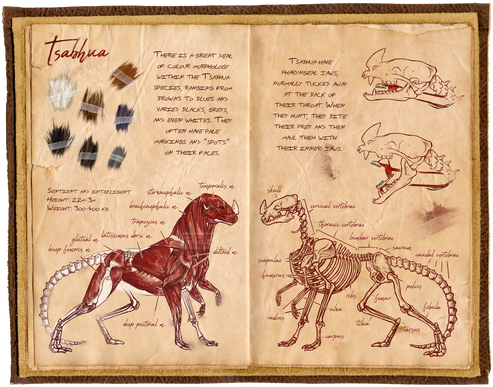 Tsabhua
There is a great deal
of colour morphology
within the Tsabhua
species, ranging from
browns to blues and
varied blacks, greys,
and even whites. They
often have pale
markings and "spots"
on their faces.
Sentient and intelligent
Height: 2.2-3m
Weight: 300-400 kg
temporalis m.
sternocephalic m.
brachiocephalic m.
trapezius m.
latissimus dorsi m.
gluteal m.
deep femoris m.
deltoid m.
deep pectoral m.
Tsabhua have
pharyngeal jaws,
normally tucked away
at the back of
their throat. When
they hunt, they bite
their prey and then
maul them with
their inner jaws.
skull
cervical vertebrae
thoracic vertebrae
lumbar vertebrae
sacrum
caudal vertebrae
scapulae
humerus
radius
ulna
carpus
ribs
femur
tibia
pelvis
fibula
tarsus